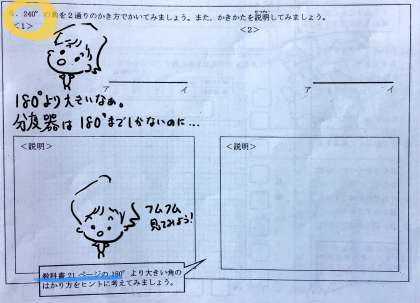 240°の角を2通りのかき方でかいてみましょう。また、かきかたを説明してみましょう。
<1>
<2>
ア イ
ア イ
180°より大きいなぁ。
分度器は180°までしかないのに…
<説明>
<説明>
フムフム
見てみよう!
教科書21ページの180°より大きい角の
はかり方をヒントに考えてみましょう。